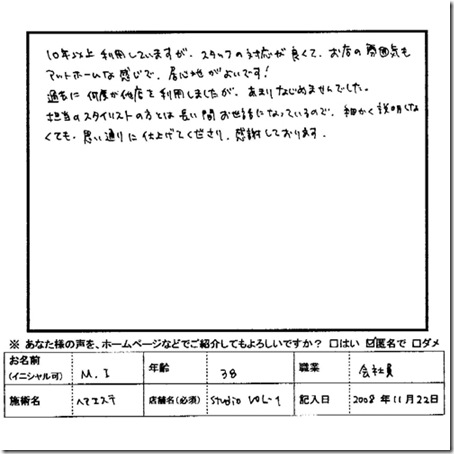 10年以上利用していますが、スタッフの対応が良くて、お店の雰囲気も
アットホームな感じで、居心地がよいです!
過去に何度か他店を利用しましたが、あまりなじめませんでした。
担当のスタイリストの方とは長い間お世話になっているので、細かく説明しな
くても、思い通りに仕上げてくださり、感謝しております。
※ あなた様の声を、ホームページなどでご紹介してもよろしいですか? □はい ☑匿名で □ダメ
お名前 (イニシャル可) M.I 年齢 38 職業 会社員
施術名 ヘアエステ 店舗名(必須) Studio VOL-1 記入日 2008年11月22日